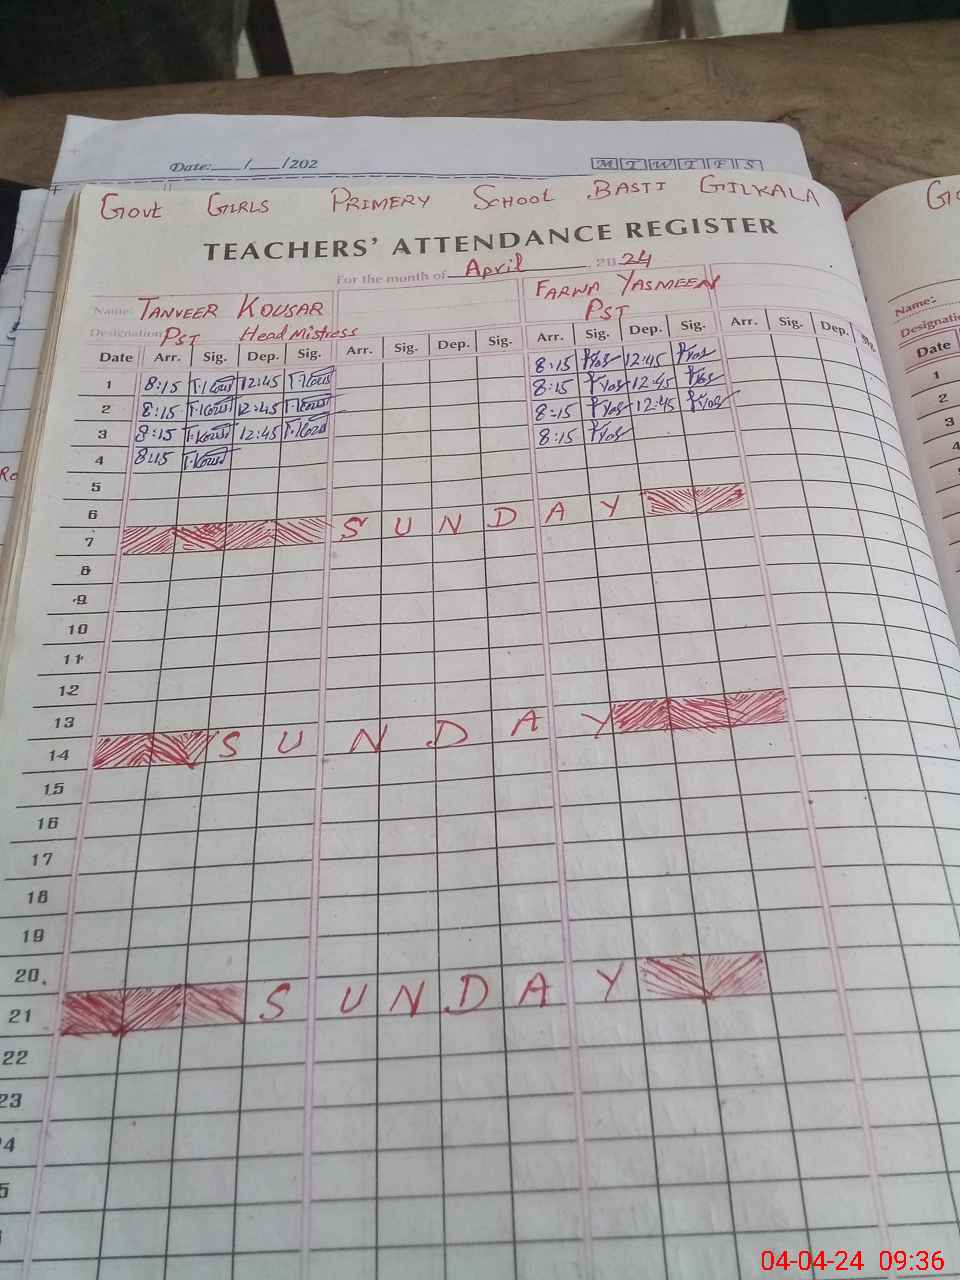 Date:___/___/202 M T W T F S
Govt GIRLS PRIMERY SCHOOL BASTI GILKALA
TEACHERS' ATTENDANCE REGISTER
For the month of April 2024
Name: TANVEER KOUSAR FARWA YASMEEN
Designation PST Head Mistress PST
Date Arr. Sig. Dep. Sig. Arr. Sig. Dep. Sig. Arr. Sig. Dep. Sig. Arr. Sig. Dep.
1 8:15 T.Kousr 12:45 T.Kousr 8:15 12:45
2 8:15 T.Kousr 12:45 T.Kousr 8:15 12:45
3 8:15 T.Kousr 12:45 T.Kousr 8:15 12:45
4 8:15 T.Kousr 8:15
5
6
7 SUNDAY
8
9
10
11
12
13
14 SUNDAY
15
16
17
18
19
20
21 SUNDAY
22
23
4
5
Name:
Designatio
Date
1
2
3
4
5
6
7
8
04-04-24 09:36